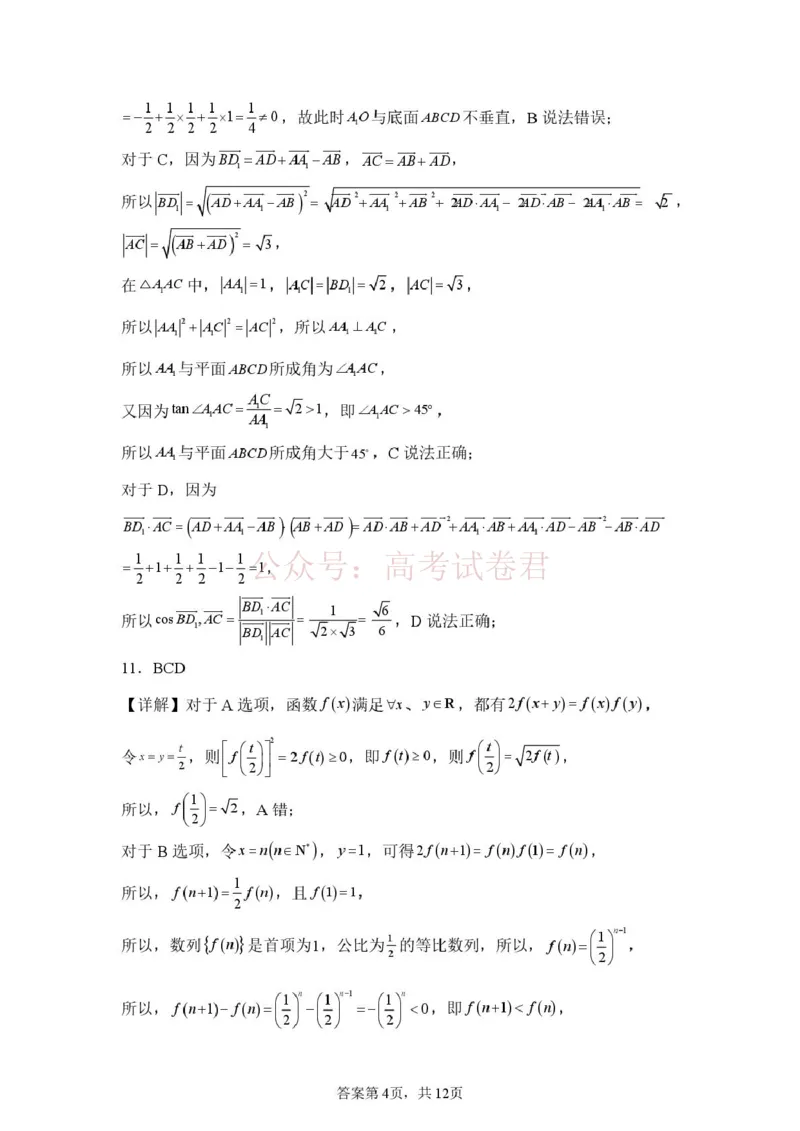 =-1/2+1/2×1/2+1/2×1=1/4≠0，故此时A₁O与底面ABCD不垂直，B说法错误；
对于C，因为BD₁=AD+AA₁-AB，AC=AB+AD，
所以|BD₁|=√(AD+AA₁-AB)²=√AD²+AA₁²+AB²+2AD·AA₁-2AD·AB-2AA₁·AB=√2，
|AC|=√(AB+AD)²=√3，
在△A₁AC中，|AA₁|=1，|A₁C|=|BD₁|=√2，|AC|=√3，
所以|AA₁|²+|A₁C|²=|AC|²，所以AA₁⊥A₁C，
所以AA₁与平面ABCD所成角为∠A₁AC，
又因为tan∠A₁AC=A₁C/AA₁=√2>1，即∠A₁AC>45°，
所以AA₁与平面ABCD所成角大于45°，C说法正确；
对于D，因为
BD₁·AC=(AD+AA₁-AB)·(AB+AD)=AD·AB+AD²+AA₁·AB+AA₁·AD-AB²-AB·AD
=1/2+1+1/2+1/2-1-1/2=1，
公众号：高考试卷君
所以cosBD₁,AC=BD₁·AC/|BD₁||AC|=1/√2×√3=√6/6，D说法正确；
11．BCD
【详解】对于A选项，函数f(x)满足∀x、y∈R，都有2f(x+y)=f(x)f(y)，
令x=y=t/2，则[f(t/2)]²=2f(t)≥0，即f(t)≥0，则f(t/2)=√2f(t)，
所以，f(1/2)=√2，A错；
对于B选项，令x=n(n∈N*)，y=1，可得2f(n+1)=f(n)f(1)=f(n)，
所以，f(n+1)=1/2f(n)，且f(1)=1，
所以，数列{f(n)}是首项为1，公比为1/2的等比数列，所以，f(n)=(1/2)ⁿ⁻¹，
所以，f(n+1)-f(n)=(1/2)ⁿ-(1/2)ⁿ⁻¹=-(1/2)ⁿ<0，即f(n+1)<f(n)，
答案第4页，共12页